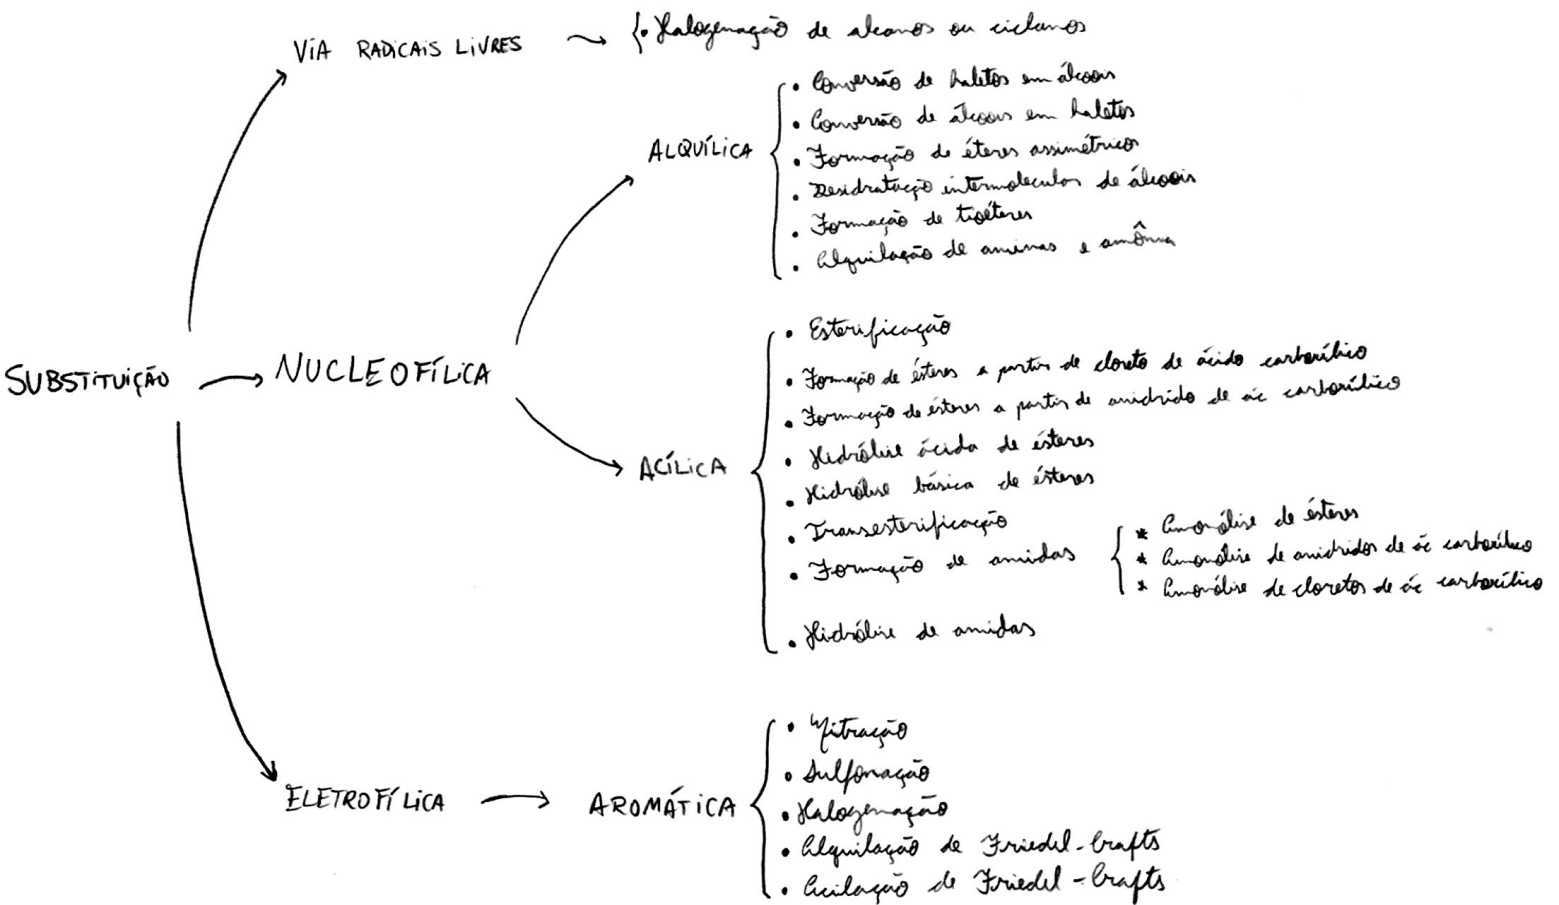 VIA RADICAIS LIVRES
• Halogenação de alcanos ou ciclanos
ALQUÍLICA
• Conversão de haletos em álcoois
• Conversão de álcoois em haletos
• Formação de éteres assimétricos
• Desidratação intermolecular de álcoois
• Formação de tioéteres
• Alquilação de aminas e amônia
SUBSTITUIÇÃO
NUCLEOFÍLICA
ACÍLICA
• Esterificação
• Formação de ésteres a partir de cloreto de ácido carboxílico
• Formação de ésteres a partir de anidrido de ác carboxílico
• Hidrólise ácida de ésteres
• Hidrólise básica de ésteres
• Transesterificação
• Formação de amidas
* Amonólise de ésteres
* Amonólise de anidridos de ác carboxílico
* Amonólise de cloretos de ác carboxílico
• Hidrólise de amidas
ELETROFÍLICA
AROMÁTICA
• Nitração
• Sulfonação
• Halogenação
• Alquilação de Friedel-Crafts
• Acilação de Friedel-Crafts